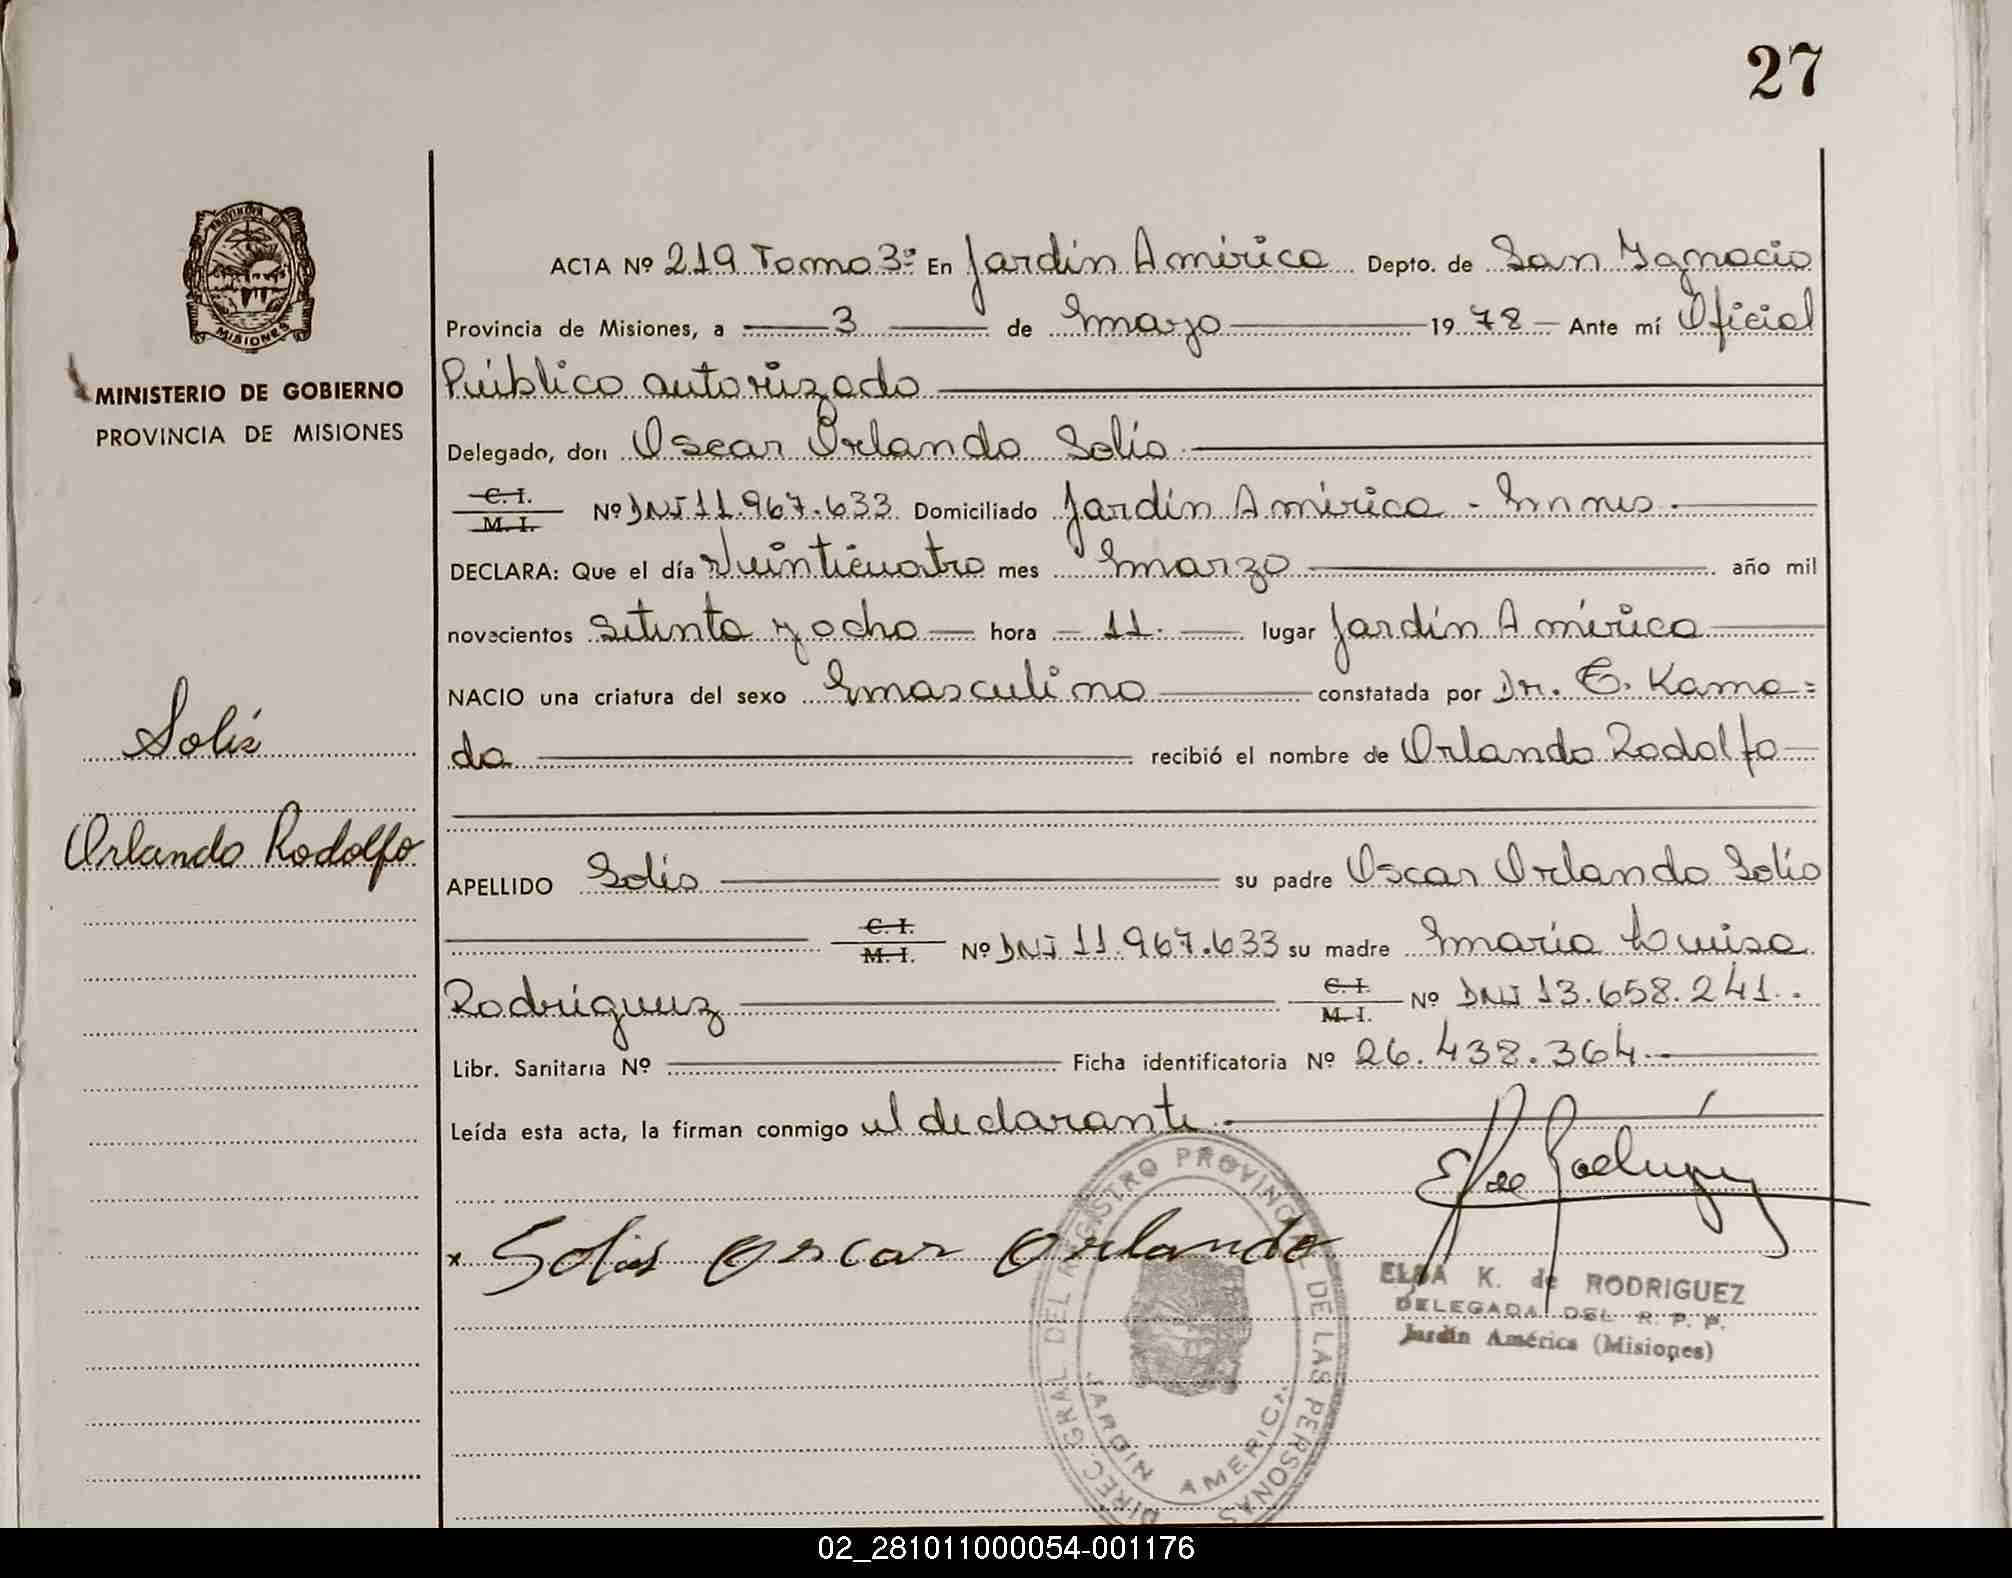 27
ACTA Nº 219 Tomo 3º En Jardín América Depto. de San Ygnacio
Provincia de Misiones, a 3 de marzo 1978 Ante mí Oficial
Público autorizado
Delegado, don Oscar Orlando Solis
C. I. M. I. Nº DNI 11.967.633 Domiciliado Jardín América - Mnes
DECLARA: Que el día Veinticuatro mes marzo año mil
novecientos setenta y ocho hora 11. lugar Jardín América
NACIO una criatura del sexo masculino constatada por Dr. E. Kama=
da recibió el nombre de Orlando Rodolfo
APELLIDO Solis su padre Oscar Orlando Solis
C. I. M. I. Nº DNI 11.967.633 su madre María Luisa
Rodríguez C. I. M. I. Nº DNI 13.658.241.
Libr. Sanitaria Nº Ficha identificatoria Nº 26.438.364
Leída esta acta, la firman conmigo el declarante
PROVINCIA DE
MISIONES
MINISTERIO DE GOBIERNO
PROVINCIA DE MISIONES
Solis
Orlando Rodolfo
x Solis Oscar Orlando
Elda Rodriguez
ELDA K. de RODRIGUEZ
DELEGADA DEL R. P. P.
Jardín América (Misiones)
DIREC. GRAL DEL REGISTRO PROVINCIAL DE LAS PERSONAS
JARDIN AMERICA
02_281011000054-001176